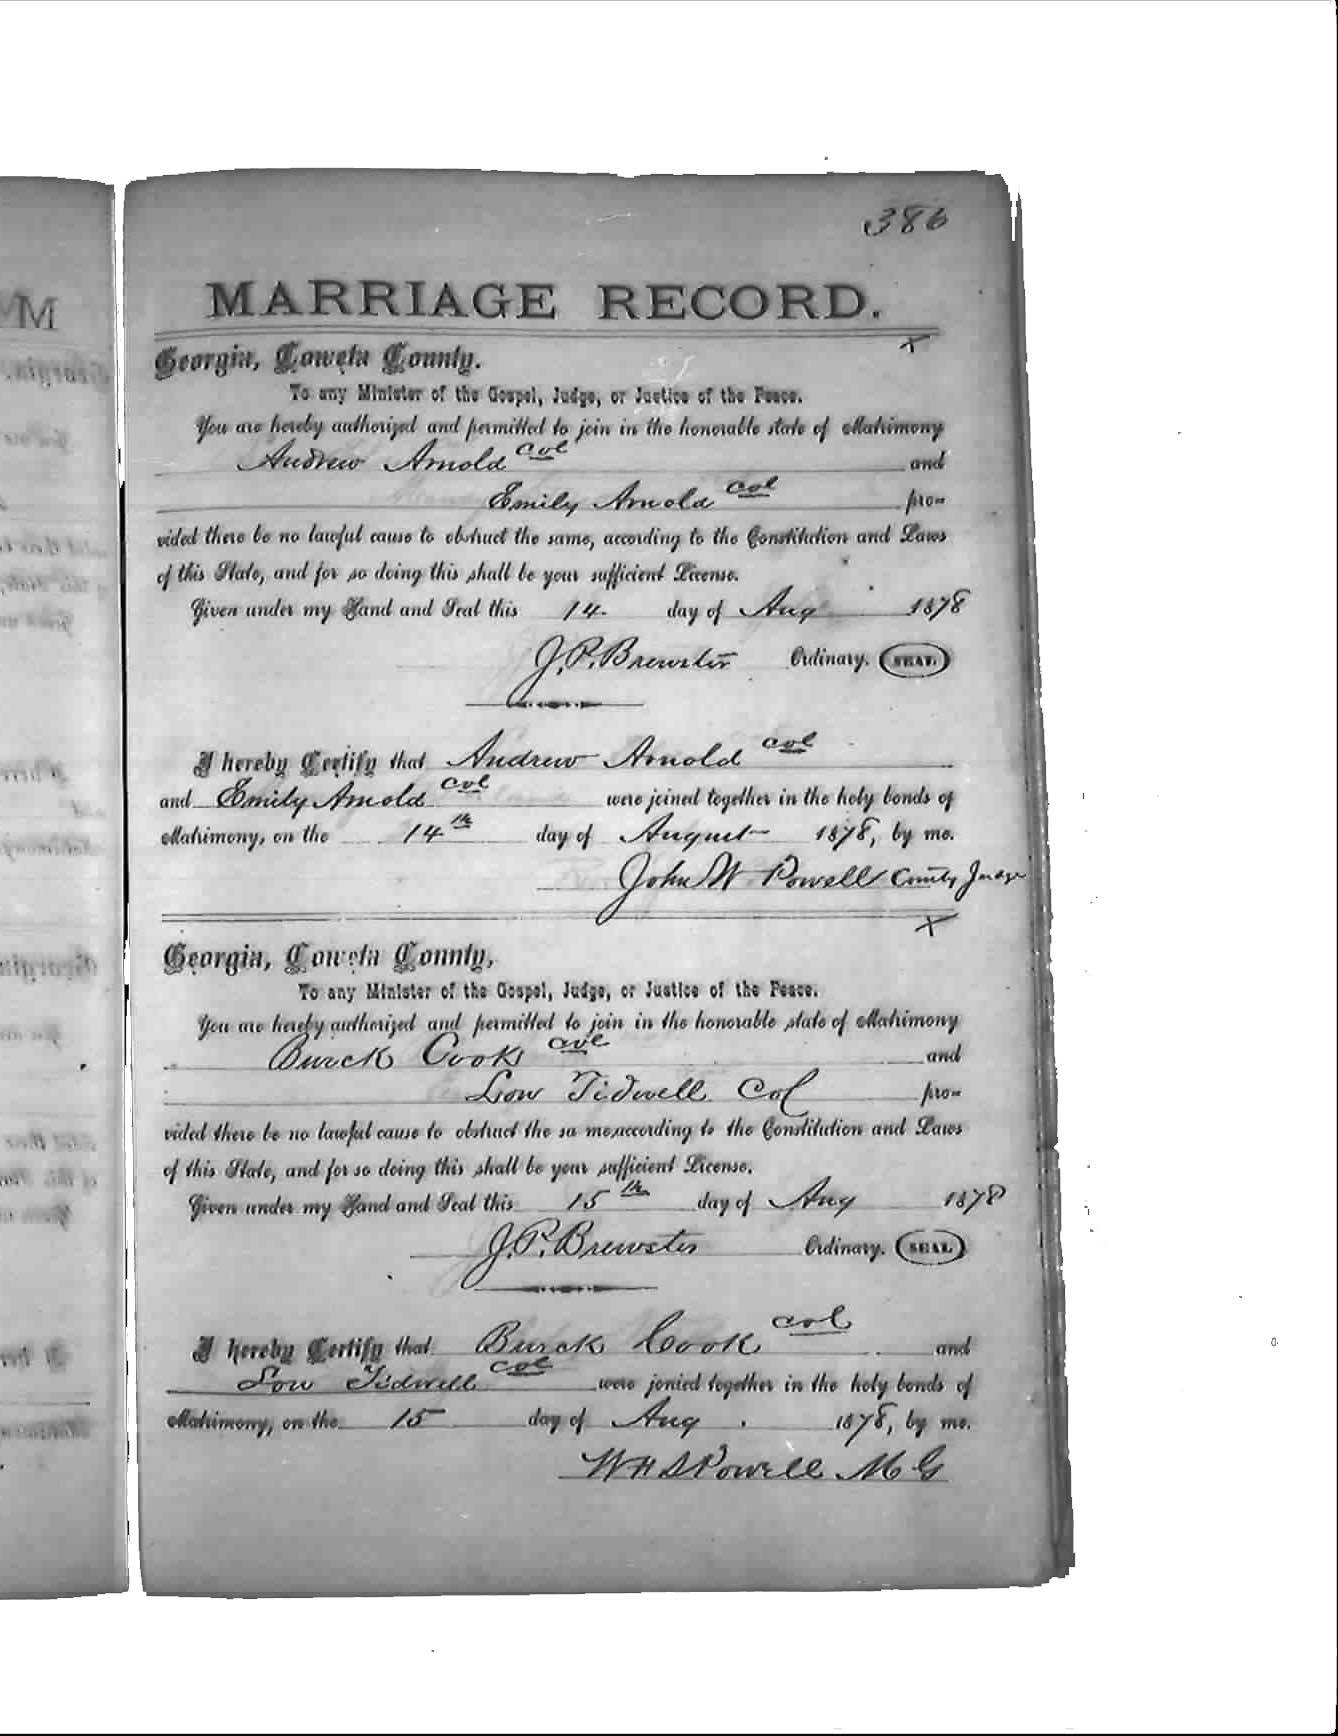 386
MARRIAGE RECORD.
x
Georgia, Coweta County.
To any Minister of the Gospel, Judge, or Justice of the Peace.
You are hereby authorized and permitted to join in the honorable state of Matrimony
Andrew Arnold col and
Emily Arnold col pro-
vided there be no lawful cause to obstruct the same, according to the Constitution and Laws
of this State, and for so doing this shall be your sufficient License.
Given under my Hand and Seal this 14 day of Aug 1878
J. P. Brewster Ordinary. SEAL.
I hereby Certify that Andrew Arnold col
and Emily Arnold col were joined together in the holy bonds of
Matrimony, on the 14th day of August 1878, by me.
John W Powell County Judge
x
Georgia, Coweta County,
To any Minister of the Gospel, Judge, or Justice of the Peace.
You are hereby authorized and permitted to join in the honorable state of Matrimony
Burck Cook col and
Low Tidwell Col pro-
vided there be no lawful cause to obstruct the sa me,according to the Constitution and Laws
of this State, and for so doing this shall be your sufficient License.
Given under my Hand and Seal this 15th day of Aug 1878
J. P. Brewster Ordinary. SEAL.
I hereby Certify that Burck Cook col and
Low Tidwell col were jonied together in the holy bonds of
Matrimony, on the 15 day of Aug. 1878, by me.
W H S Powell M. G